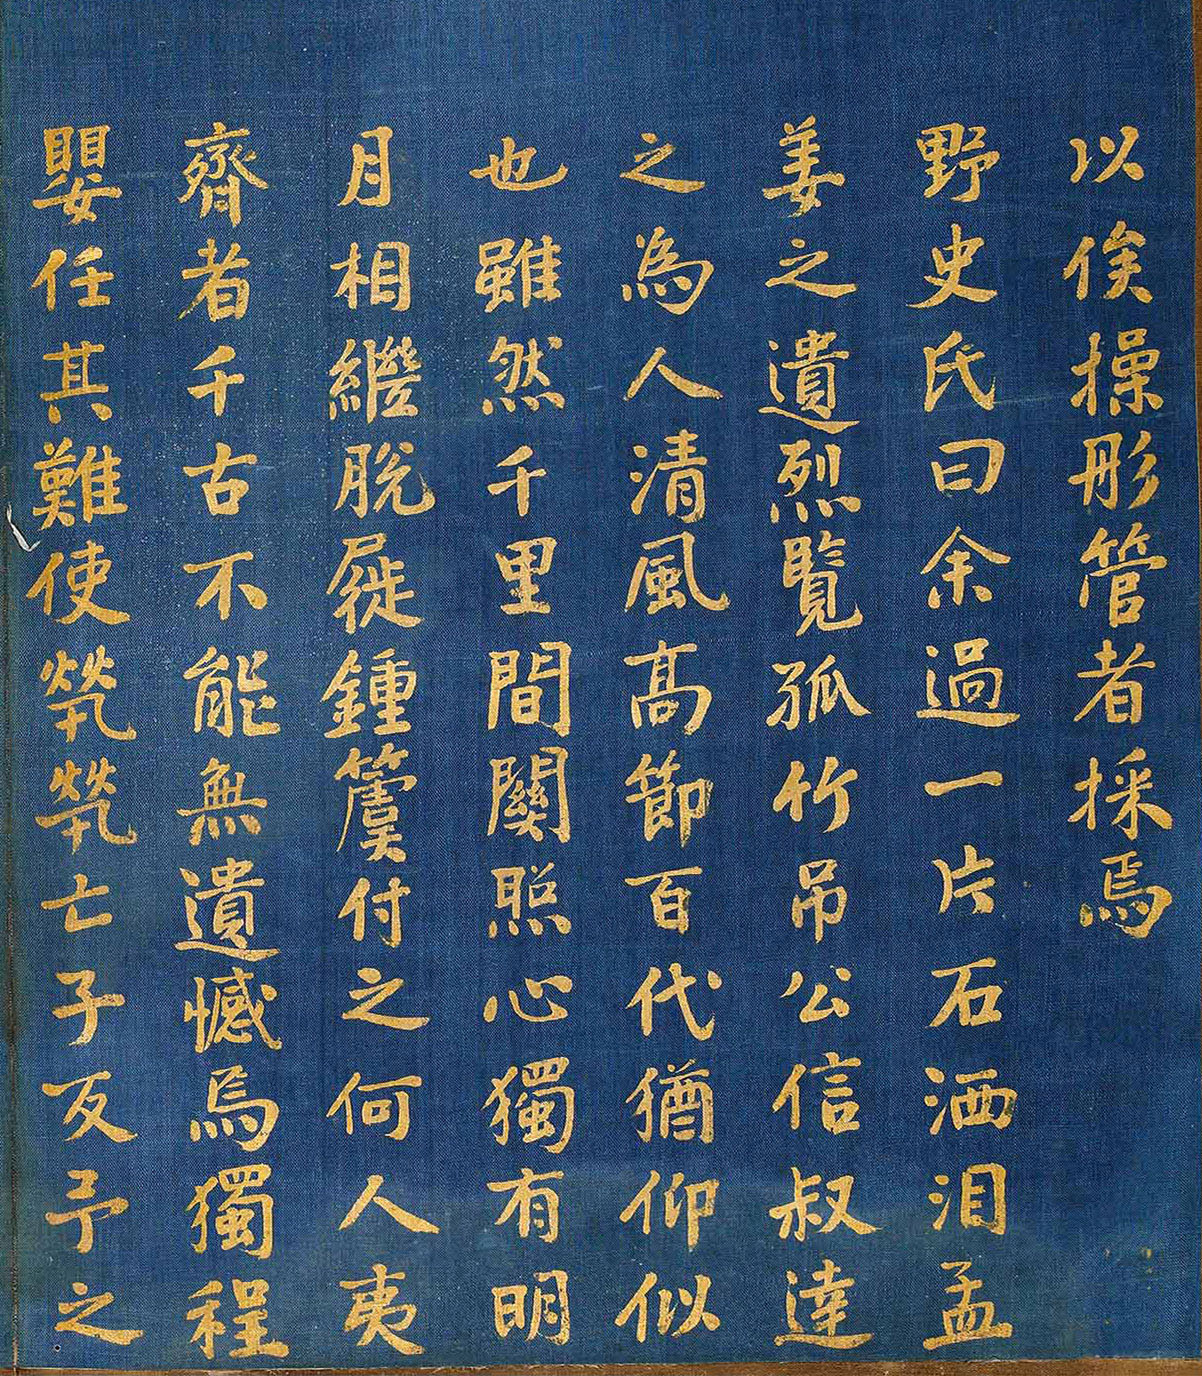 以俟操彤管者採焉
野史氏曰余過一片石洒泪孟
姜之遺烈覽孤竹吊公信叔達
之為人清風高節百代猶仰似
也雖然千里間關照心獨有明
月相繼脫屣鍾簴付之何人夷
齊者千古不能無遺憾焉獨程
嬰任其難使煢煢亡子反予之